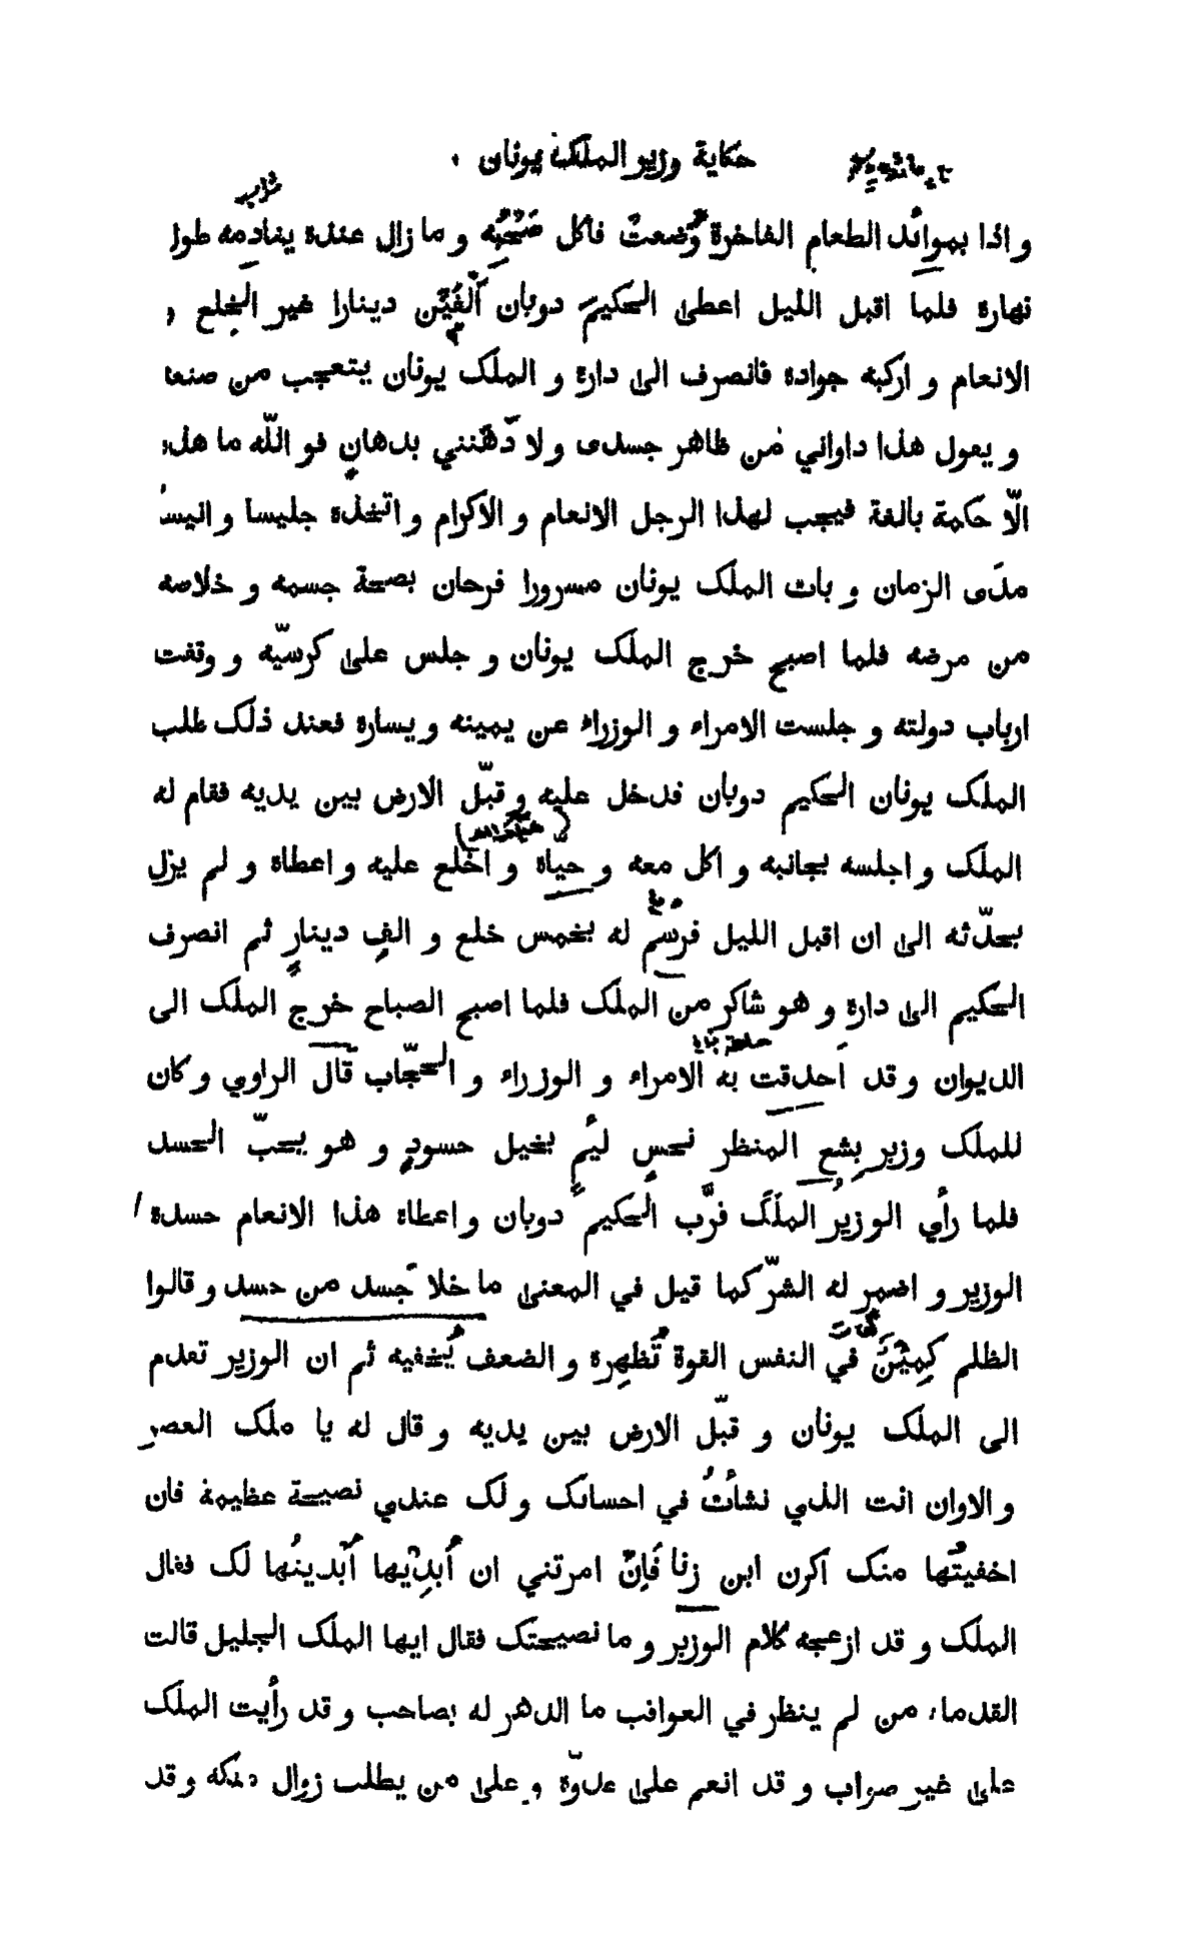 حكاية وزير الملك يونان
واذا بموائد الطعام الفاخرة وُضعتْ فاكل صُحْبَتِه و ما زال عنده ينادمه طول
نهاره فلما اقبل الليل اعطى الحكيمَ دوبان أَلْفَيْن دينارا غير الخِلع و
الانعام و اركبه جواده فانصرف الى داره و الملك يونان يتعجب من صنعه
و يعول هذا داواني من ظاهر جسدى و لا دَهَّنني بدهانٍ فو اللّه ما هذه
الّا حكمة بالغة فيجب لهذا الرجل الانعام و الاكرام و اتخذه جليسا و انيسا
مدَى الزمان و بات الملك يونان مسرورا فرحان بصحة جسمه و خلاصه
من مرضه فلما اصبح خرج الملك يونان و جلس على كرسيّه و وقفت
ارباب دولته و جلست الامراء و الوزراء عن يمينه و يساره فعند ذلك طلب
الملك يونان الحكيم دوبان فدخل عليه و قبّل الارض بين يديه فقام له
الملك و اجلسه بجانبه و اكل معه و حيّاه و اخلع عليه و اعطاه و لم يزل
يحدّثه الى ان اقبل الليل فرسّم له بخمس خلع و الفِ دينارٍ ثم انصرف
الحكيم الى داره و هو شاكر من الملك فلما اصبح الصباح خرج الملك الى
الديوان و قد اَحدقت به الامراء و الوزراء و الحجّاب قال الراوي و كان
للملك وزير بِشعِ المنظر نحسٍ ليمٍ بخيل حسودٍ و هو يحبّ الحسد
فلما رأي الوزيرُ الملكَ قرَّب الحكيمَ دوبان و اعطاه هذا الانعام حسده
الوزير و اضمر له الشرّ كما قيل في المعنى ما خلا جَسد من حسد و قالوا
الظلم كَمِيْنٌ في النفس القوة تُظهِره و الضعف يُخفيه ثم ان الوزير تعدم
الى الملك يونان و قبّل الارض بين يديه و قال له يا ملك العصر
و الاوان انت الذي نشأتُ في احسانك و لك عندي نصيحة عظيمة فان
اخفيتُها منك اكرن ابن زنا فَاِنْ امرتني ان أُبدِيَها أَبْدينُها لك فقال
الملك و قد ازعجه كلام الوزير و ما نصيحتك فقال ايها الملك الجليل قالت
القدماء من لم ينظر في العواقب ما الدهر له بصاحب و قد رأيت الملك
على غير صواب و قد انعم على عدوّه و على من يطلب زوال ملكه و قد